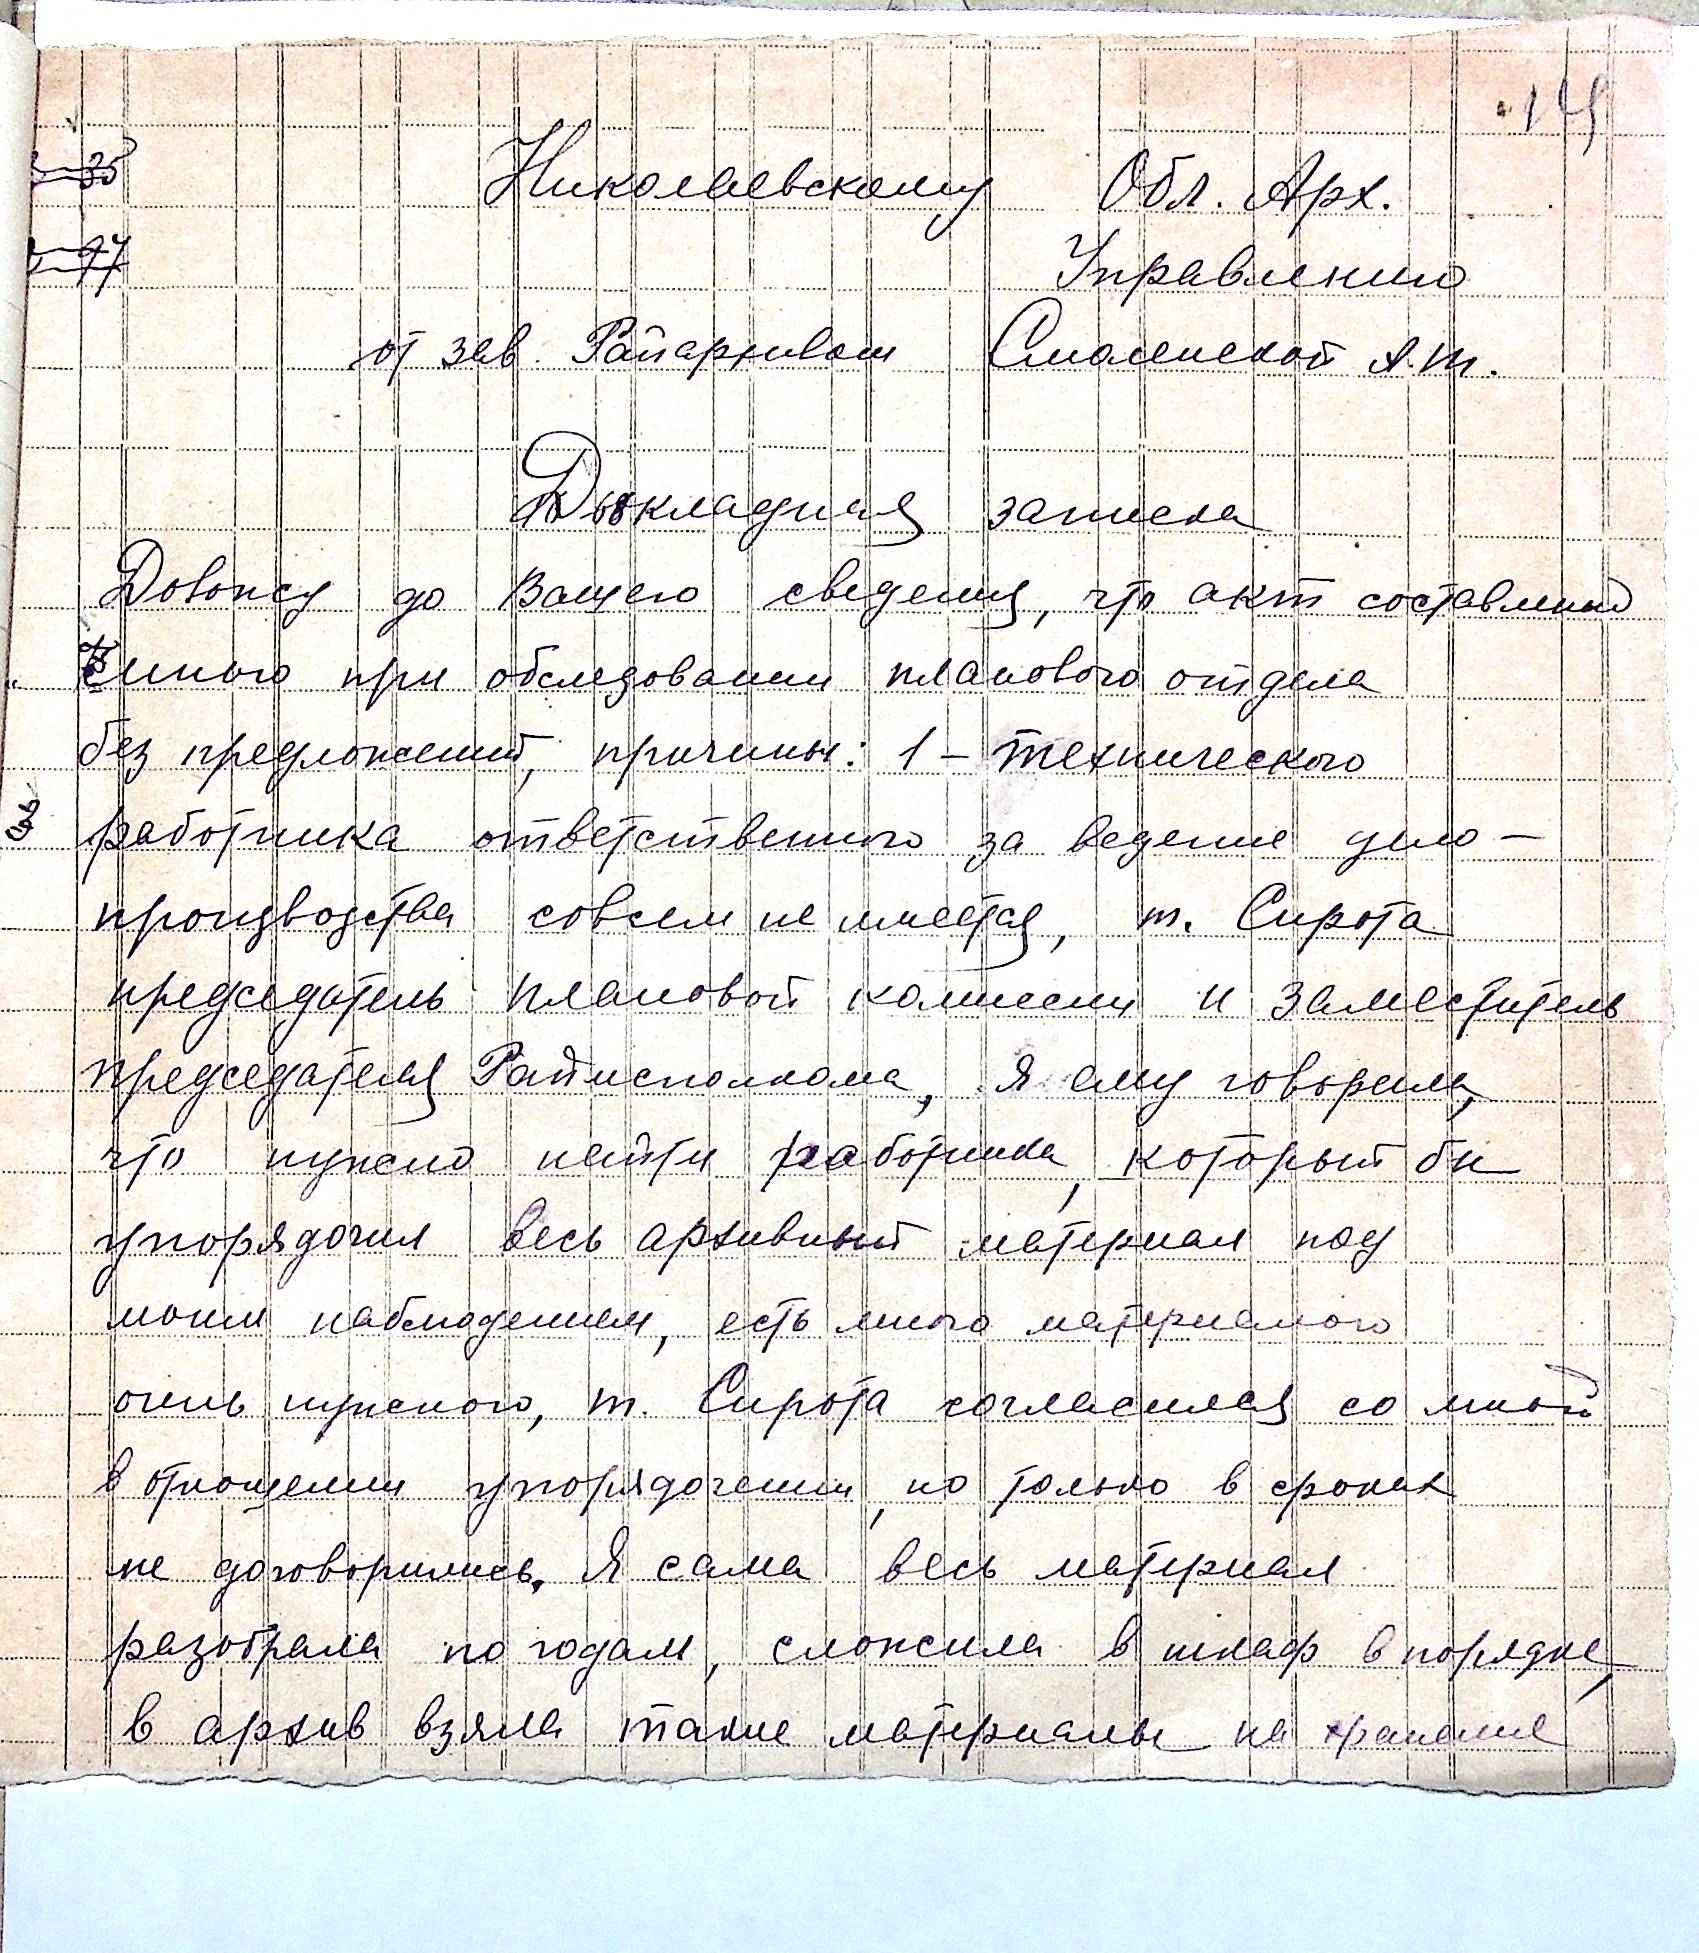 14
35
Николаевскому Обл. Арх.
77
Управлению
от зав. Райархивом Смоленской А.т.
Докладная записка
Довожу до Вашего сведения, что акт составленый
мною при обследовании планового отдела
без предложений, причины: 1 – технического
работника ответственного за ведение дело–
производства совсем не имеется, т. Сирота
председатель плановой комиссии и заместитель
председателя Райисполкома, я ему говорила,
что нужно найти работника, который бы
упорядочил весь архивный материал под
моим наблюдением, есть много материалого
очень нужного, т. Сирота согласился со мной
в отношении упорядочении, но только в сроках
не договорились. Я сама весь материал
разобрала по годам, сложила в шкаф в порядке,
в архив взяла такие материалы на хранение